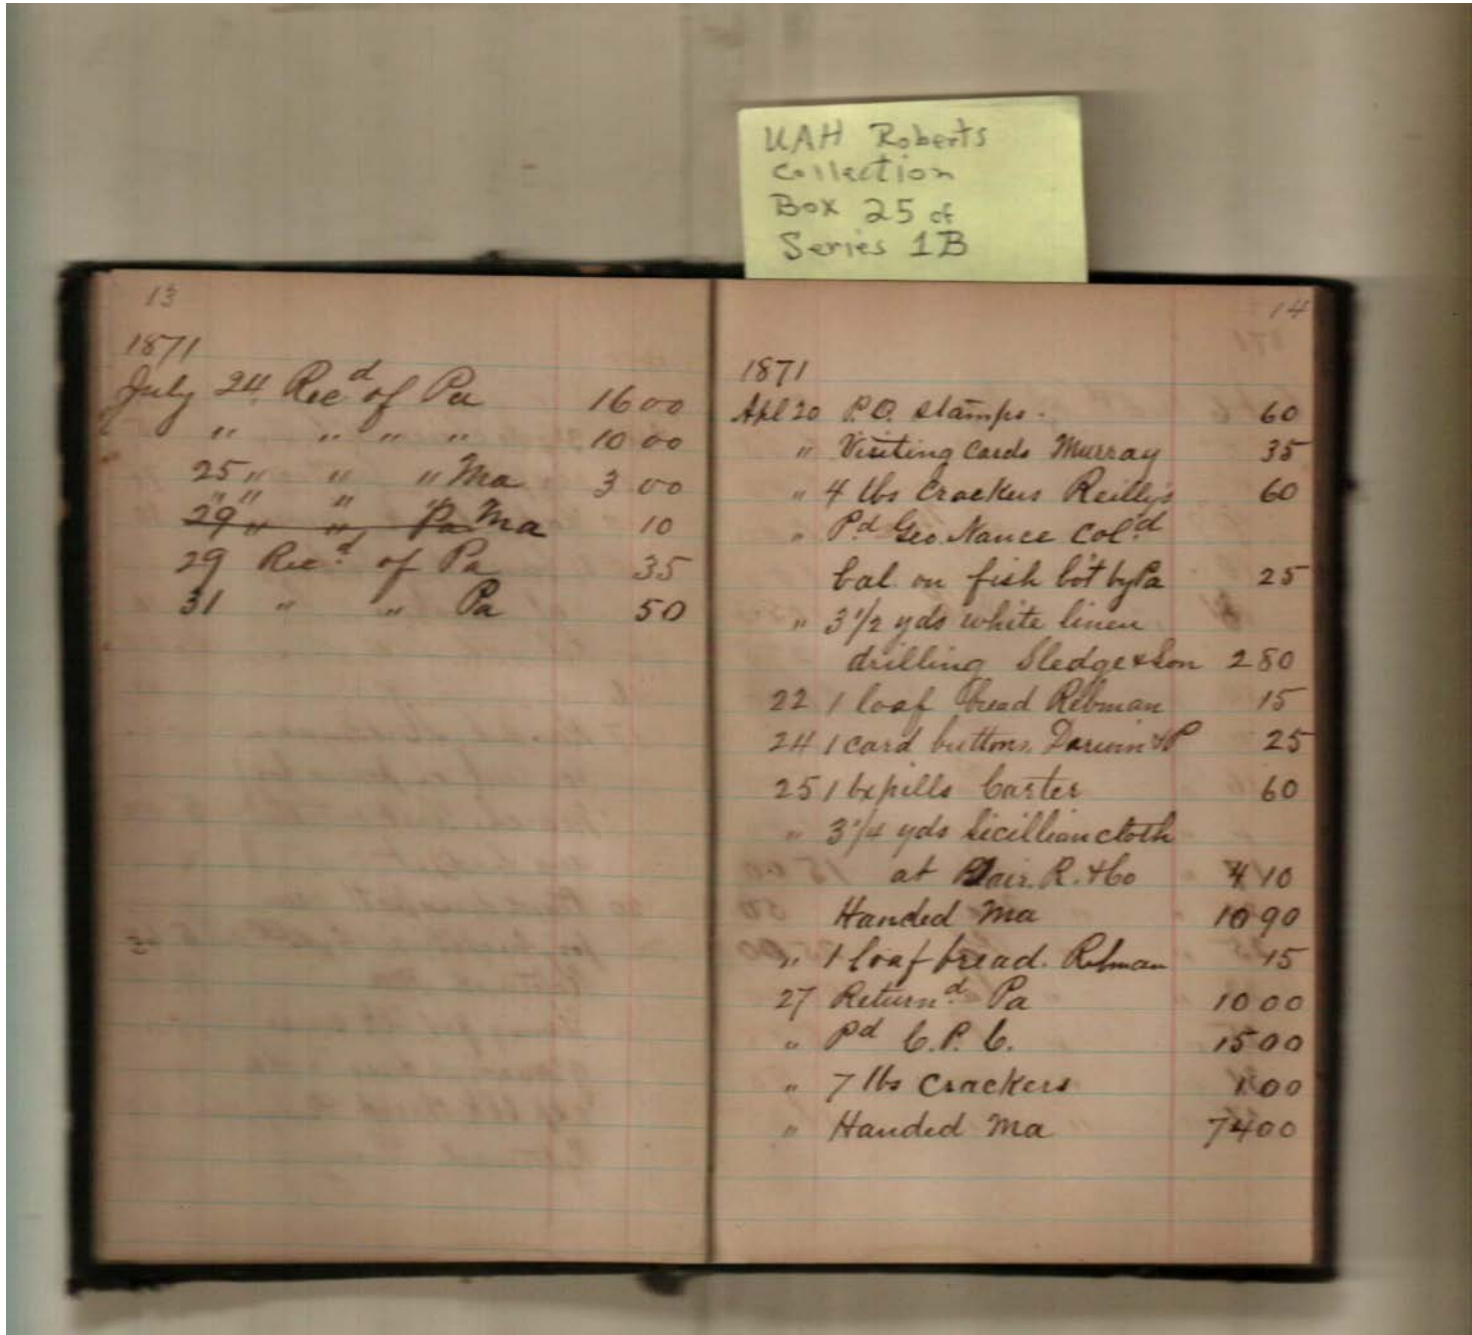 UAH Roberts
Collection
Box 25 of
Series 1B
13
1871
July 24 Recd of Pa 16 00
" " " " 10 00
25 " " " Ma 3 00
29 " " Pa Ma 10
29 Recd. of Pa 35
31 " " Pa 50
14
1871
Apl 20 P.O. Stamps. 60
" Visiting Cards Murray 35
" 4 lbs Crackers Reilly's 60
" Pd Geo. Nance Cold
bal. on fish bo't by Pa 25
" 3 1/2 yds white linen
drilling Sledge & Son 2 80
22 1 loaf bread Rebman 15
24 1 card buttons, Darwin & P 25
25 1 bx pills Carter 60
" 3 1/4 yds Sicillian cloth
at Blair. R. & Co 4 10
Handed Ma 10 90
" 1 loaf bread. Rebman 15
27 Returnd Pa 10 00
" Pd C. P. C. 15 00
" 7 lbs Crackers 1 00
" Handed Ma 74 00